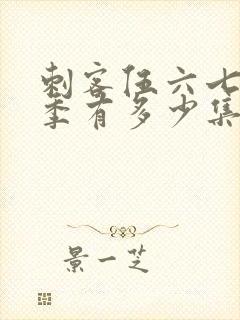 刺客伍六七
季有多少集
景一芝